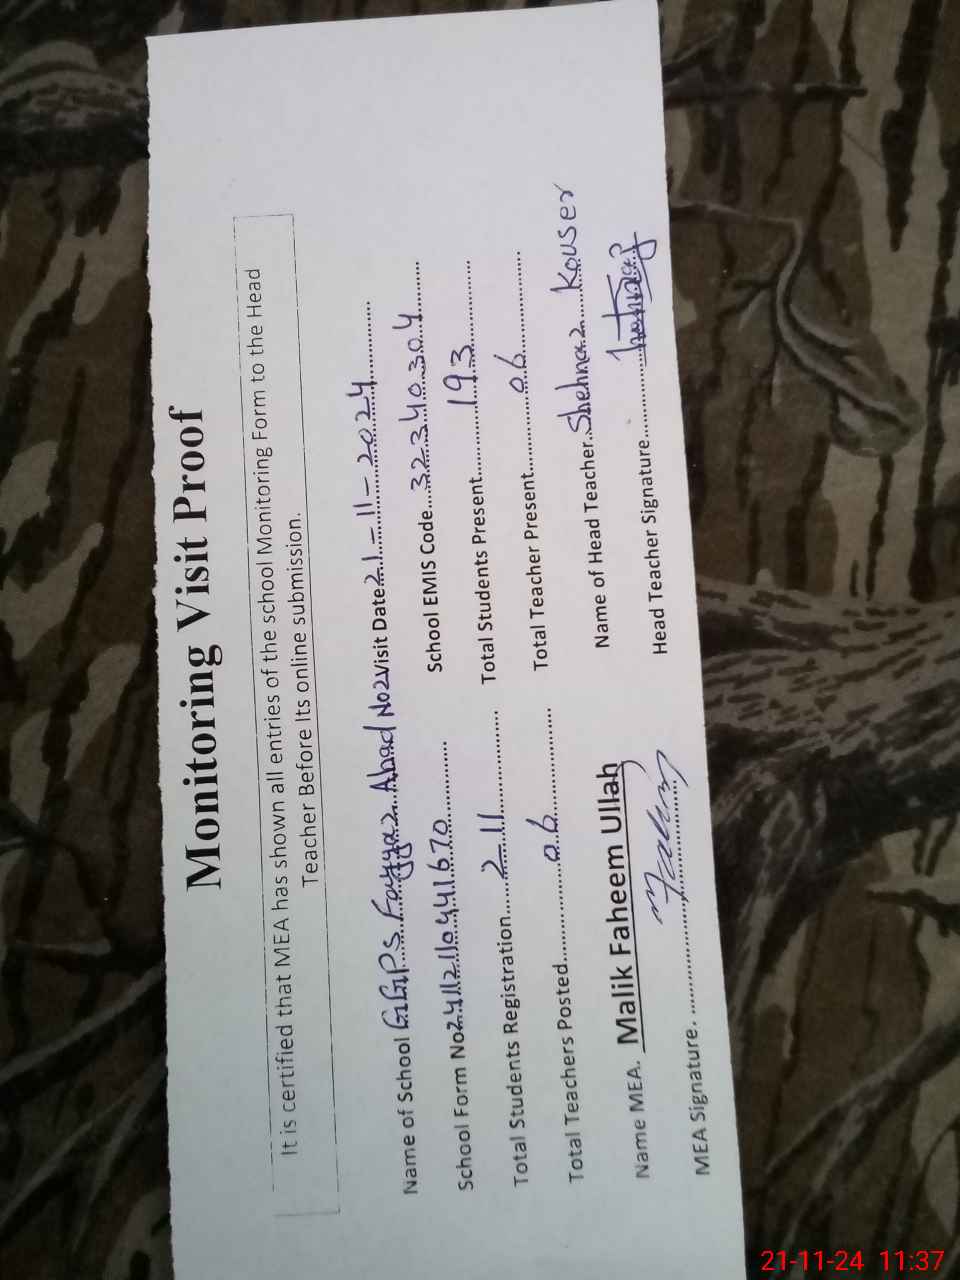 Monitoring Visit Proof
It is certified that MEA has shown all entries of the school Monitoring Form to the Head
Teacher Before Its online submission.
Name of School GGPS Fayyaz Abad No2 Visit Date 21-11-2024
School Form No 241121104441670 School EMIS Code 32340304
Total Students Registration 211 Total Students Present 193
Total Teachers Posted 06 Total Teacher Present 06
Name MEA. Malik Faheem Ullah Name of Head Teacher Shehnaz Kouser
MEA Signature. Head Teacher Signature
21-11-24 11:37